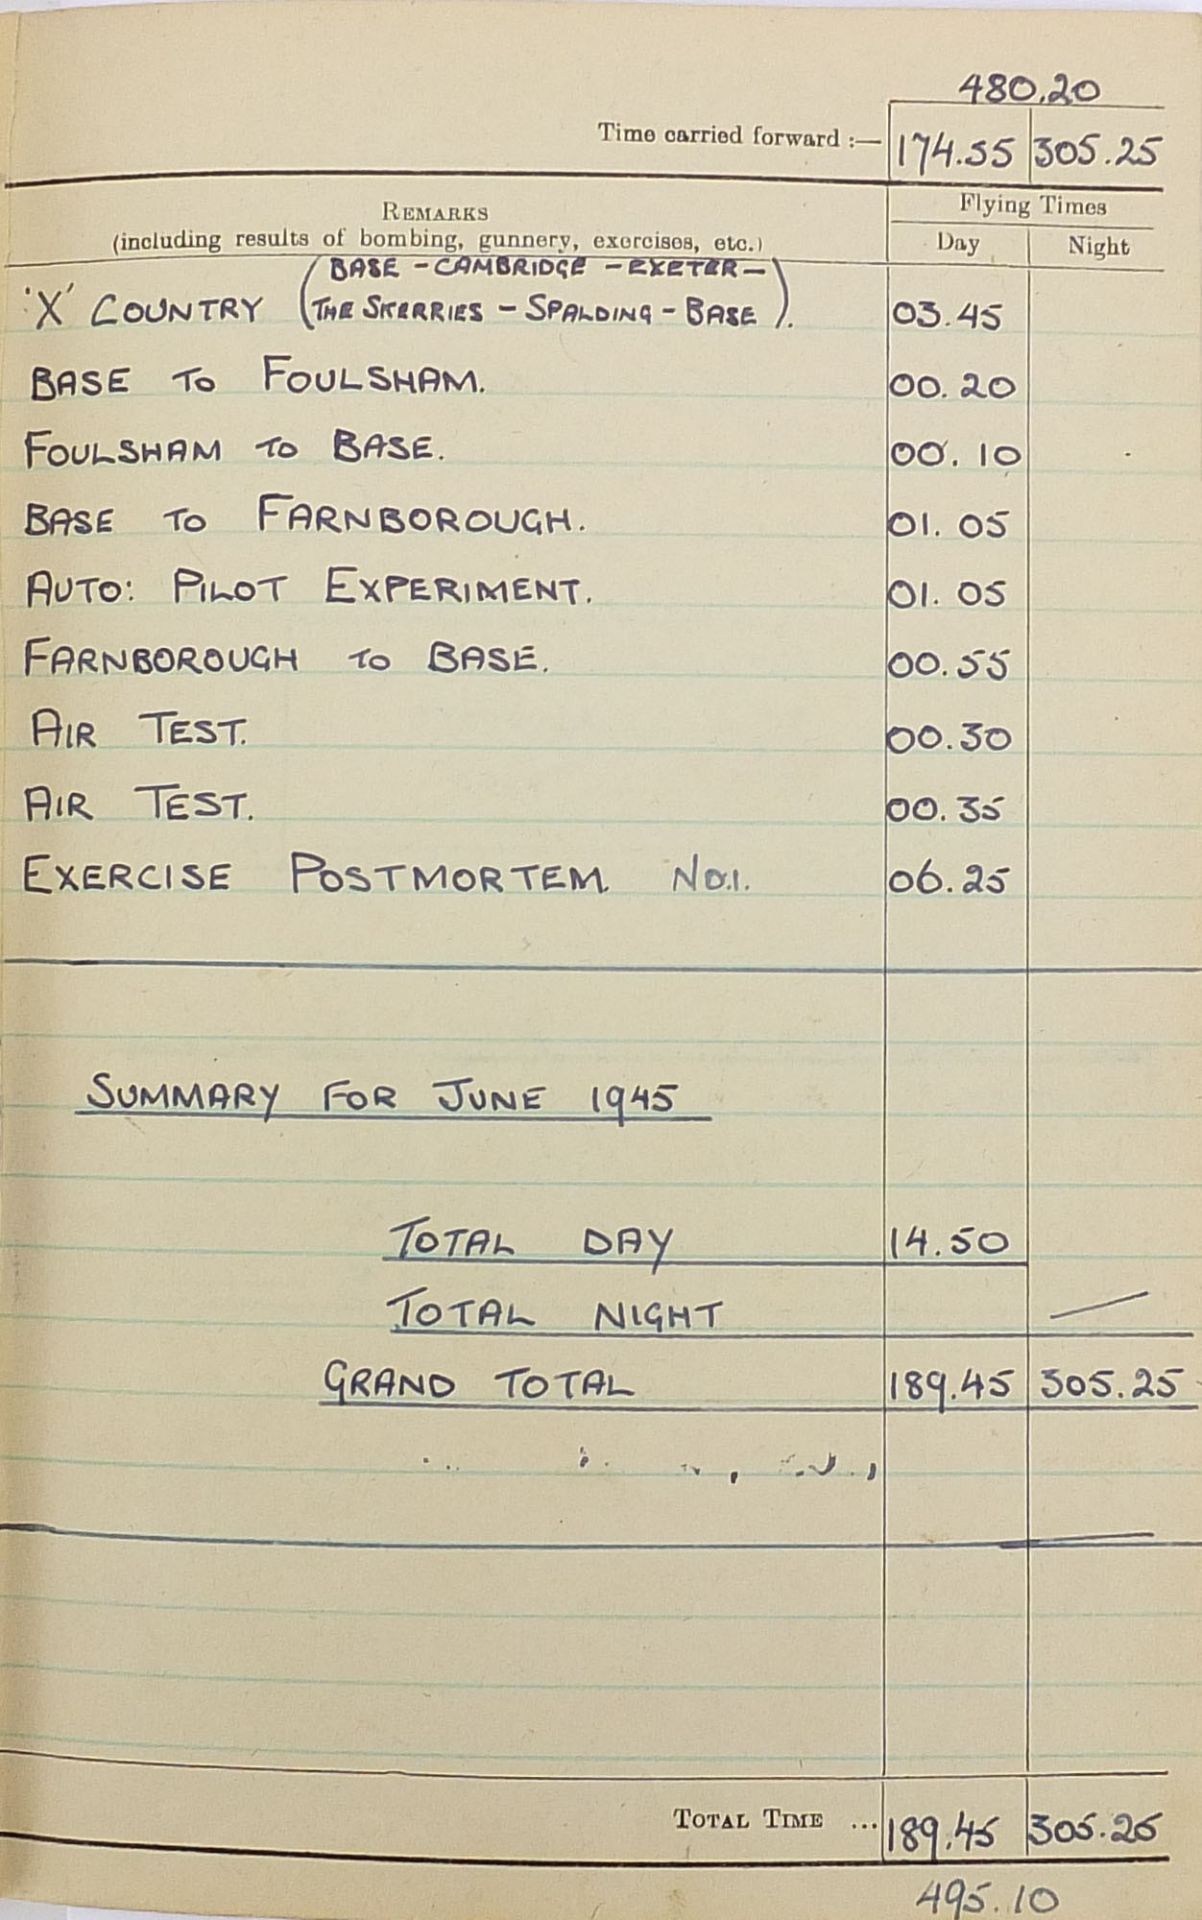 480.20
Time carried forward :— 174.55 305.25
REMARKS Flying Times
(including results of bombing, gunnery, exercises, etc.) Day Night
(BASE - CAMBRIDGE - EXETER -
'X' COUNTRY THE SKERRIES - SPALDING - BASE). 03.45
BASE TO FOULSHAM. 00.20
FOULSHAM TO BASE. 00.10
BASE TO FARNBOROUGH. 01.05
AUTO: PILOT EXPERIMENT. 01.05
FARNBOROUGH TO BASE. 00.55
AIR TEST. 00.30
AIR TEST. 00.35
EXERCISE POSTMORTEM No.1. 06.25
SUMMARY FOR JUNE 1945
TOTAL DAY 14.50
TOTAL NIGHT —
GRAND TOTAL 189.45 305.25
TOTAL TIME ... 189.45 305.25
495.10